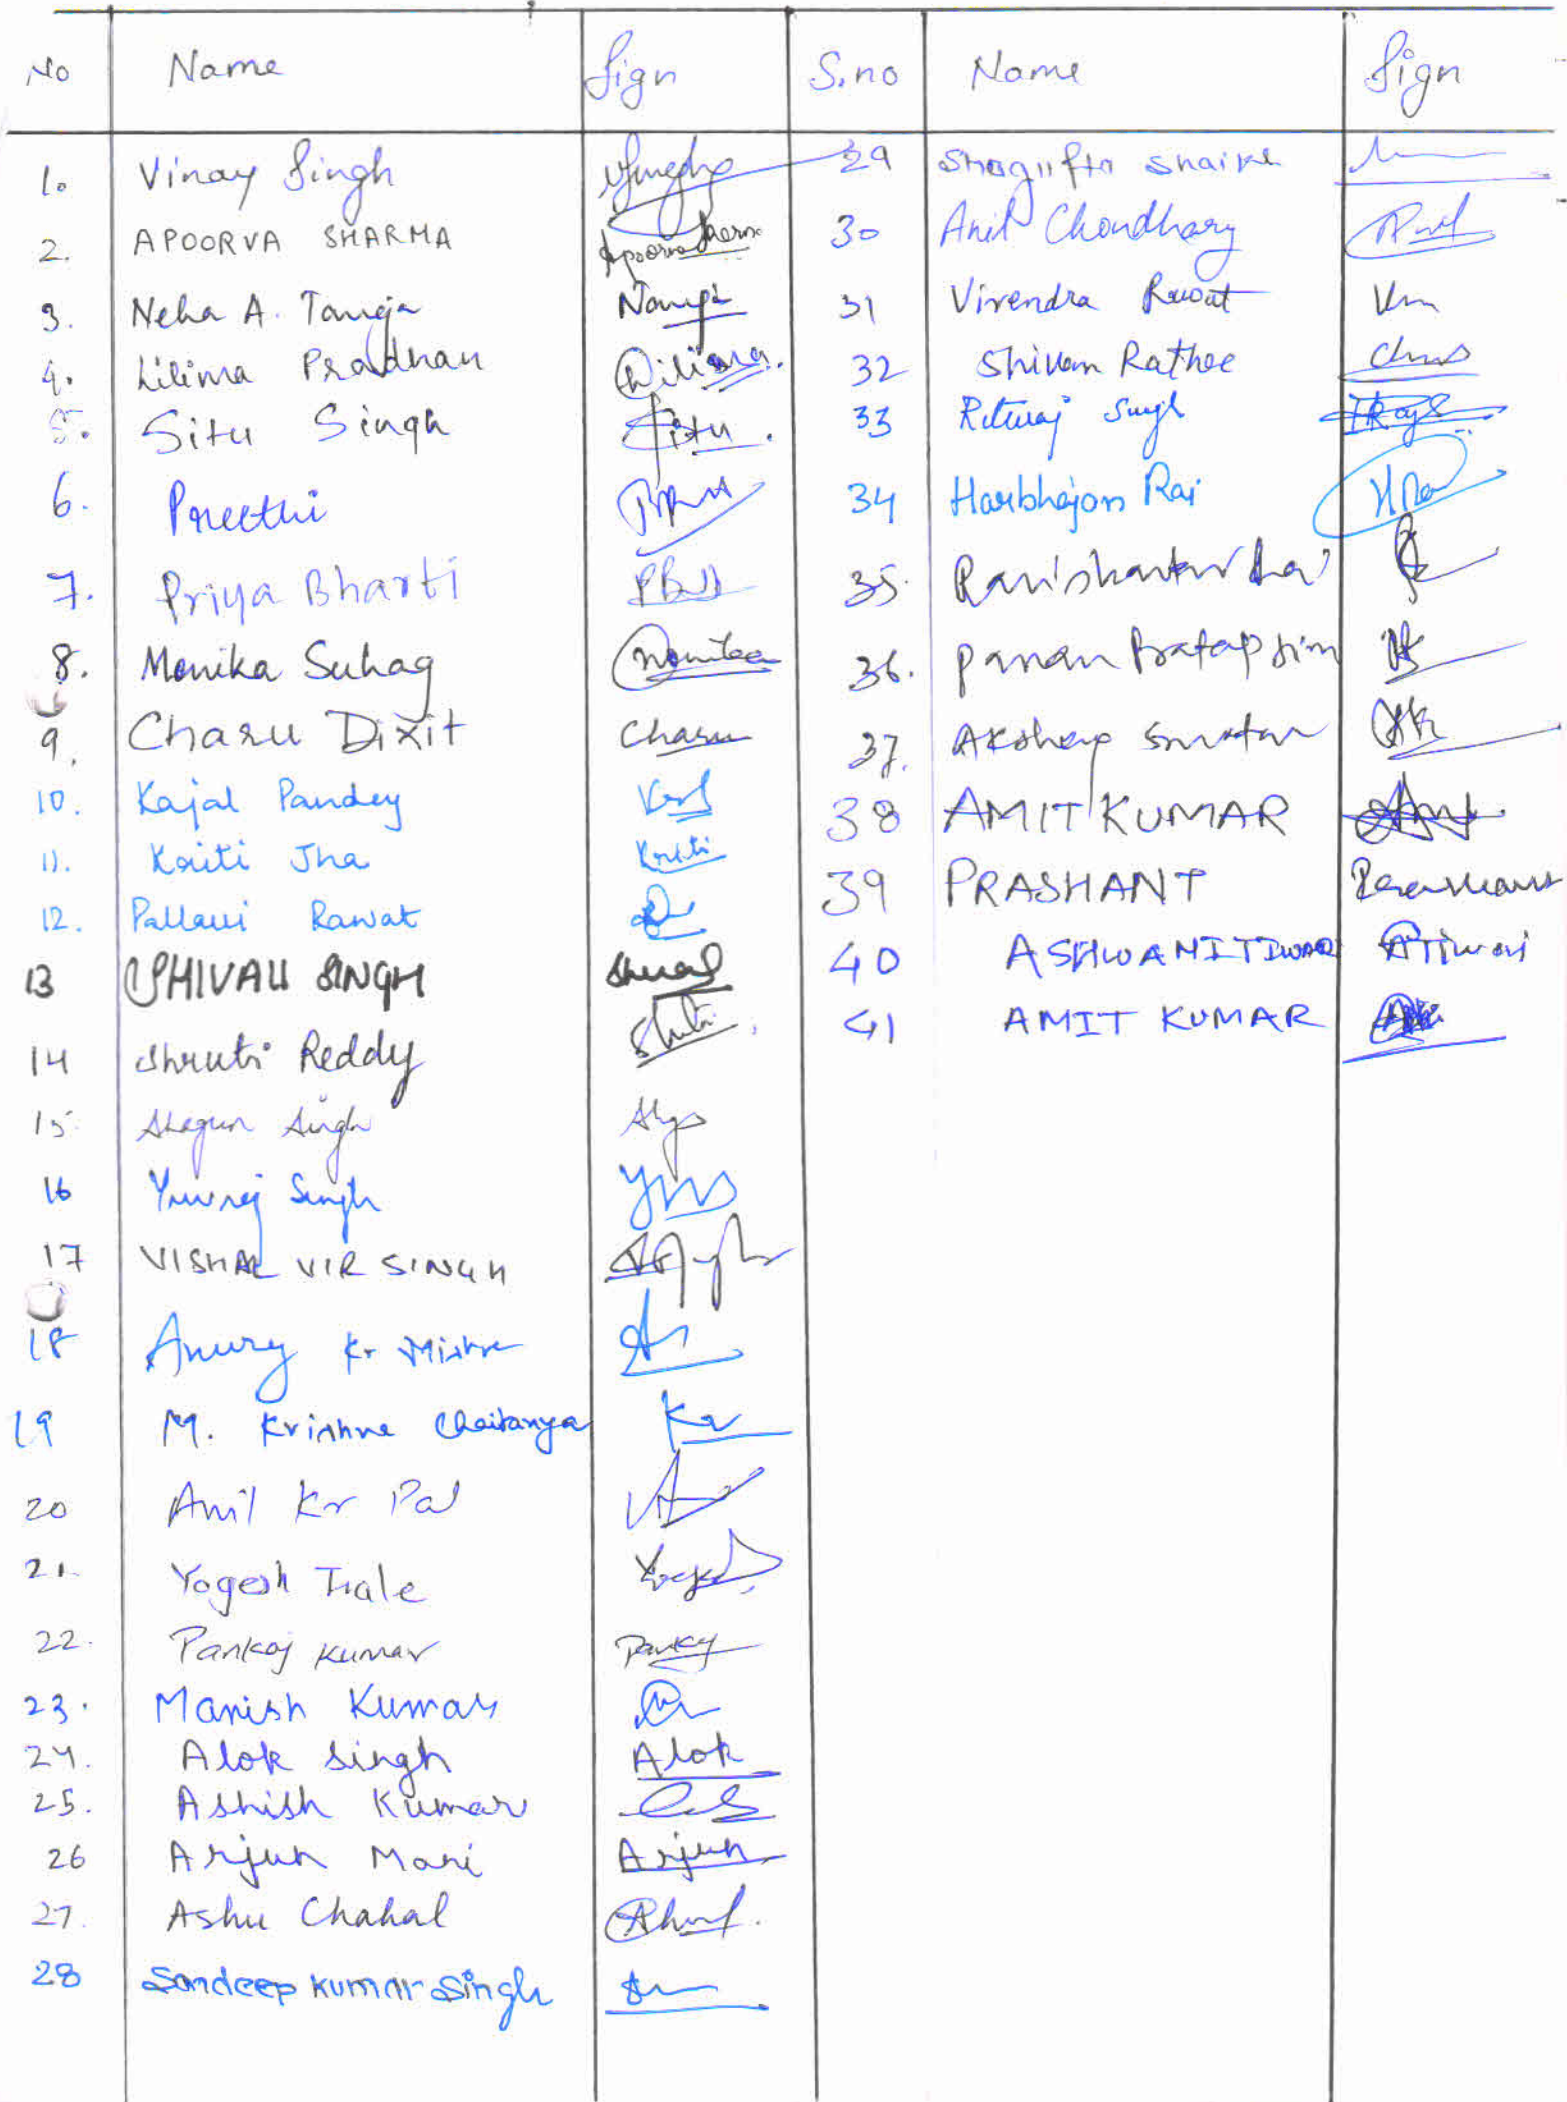 No Name Sign S.no Name Sign
1. Vinay Singh
2. APOORVA SHARMA Apoorva Sharma
3. Neha A. Taneja
4. Lilima Pradhan Lilima.
5. Situ Singh Situ.
6. Preethi
7. Priya Bharti
8. Monika Suhag Monika
9. Charu Dixit Charu
10. Kajal Pandey
11. Kriti Jha Kriti
12. Pallavi Rawat
13 SHIVALI SINGH
14 Shruti Reddy
15. Shagun Singh
16 Yuvraj Singh YVS
17 VISHAL VIR SINGH
18 Anurag Kr Mishra
19 M. Krishna Chaitanya Kr
20 Anil Kr Pal
21. Yogesh
22. Pankaj Kumar Pankaj
23. Manish Kumar
24. Alok Singh Alok
25. Ashish Kumar
26 Arjun Mani Arjun
27. Ashu Chahal
28 Sandeep Kumar Singh
29 Shagufta Shaikh
30 Anil Choudhary Anil
31 Virendra Rawat
32 Shivam Rathee
33 Rituraj Singh
34 Harbhajan Rai H Rai
35. Ravishankar
36. Pawan Pratap
37. Akshay
38 AMIT KUMAR
39 PRASHANT Prashant
40 ASHWANI TIWARI ATiwari
41 AMIT KUMAR